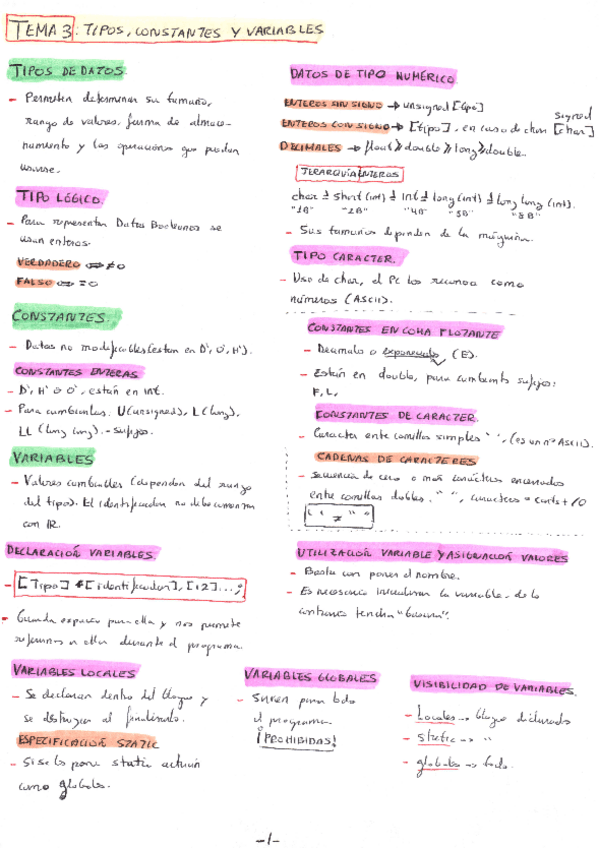 TEMA 3: TIPOS, CONSTANTES Y VARIABLES.
TIPOS DE DATOS.
- Permiten determinar su tamaño,
rango de valores, forma de almace-
namiento y las operaciones que puedan
usarse.
TIPO LÓGICO.
- Para representar Datos Booleanos se
usan enteros.
VERDADERO ⇔ ≠ 0
FALSO ⇔ = 0
DATOS DE TIPO NUMÉRICO.
ENTEROS SIN SIGNO → unsigned [tipo]
ENTEROS CON SIGNO → [tipo], en caso de char signed [char]
DECIMALES → float » double » long » double..
JERARQUÍA ENTEROS
char ≤ short (int) ≤ int ≤ long (int) ≤ long long (int).
"1B" "2B" "4B" "8B" "8B"
- Sus tamaños dependen de la máquina.
TIPO CARACTER.
- Uso de char, el Pc los reconoce como
números (ASCII).
CONSTANTES.
- Datos no modificables (están en D', O', H').
CONSTANTES ENTERAS
- D', H' o O', están en int.
- Para cambiarlas. U (unsigned), L (long),
LL (long long). - Sufijos.
CONSTANTES EN COMA FLOTANTE
- Decimal o exponencial (E).
- Están en double, para cambiarlo sufijos:
F, L,
CONSTANTES DE CARACTER.
- Caracter entre comillas simples ' ', (es un nº ASCII).
CADENAS DE CARACTERES
- Secuencia de cero o más caracteres encerrados
entre comillas dobles. " ", caracteres + /0
' ' ≠ " "
VARIABLES
- Valores cambiables (dependen del rango
del tipo). El identificador no debe comenzar
con
DECLARACIÓN VARIABLES.
- [Tipo] [identificador], [i2]...;
- Guarda espacio para ella y nos permite
referirnos a ella durante el programa.
UTILIZACIÓN VARIABLE Y ASIGNACIÓN VALORES
- Basta con poner el nombre.
- Es necesario inicializar la variable, de lo
contrario tendrá "basura".
VARIABLES LOCALES
- Se declaran dentro del bloque y
se destruyen al finalizarlo.
ESPECIFICACIÓN STATIC
- Si se les pone static actúan
como globales.
VARIABLES GLOBALES
- Sirven para todo
el programa.
¡PROHIBIDAS!
VISIBILIDAD DE VARIABLES.
- Locales → bloque declarado
- static → "
- globales → todo.
-1-